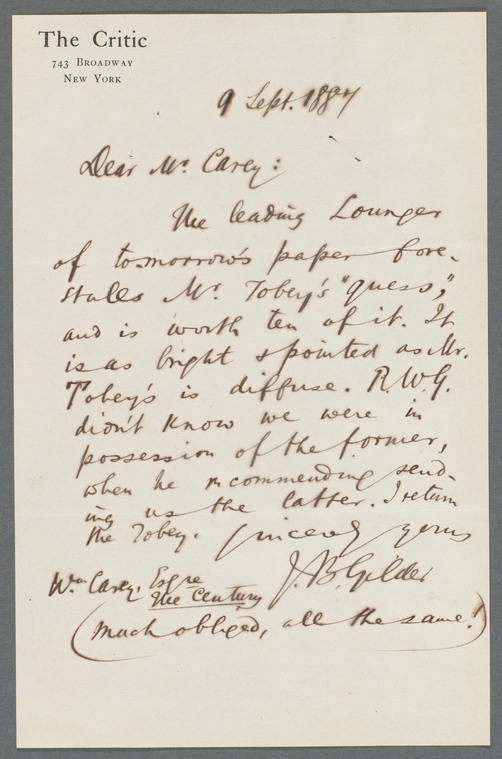 The Critic
743 Broadway
New York
9 Sept. 1887
Dear Mr. Carey:
The leading Lounger
of to-morrow's paper fore-
stalls Mr. Tobey's "guess,"
and is worth ten of it. It
is as bright & pointed as Mr.
Tobey's is diffuse. R.W.G.
didn't know we were in
possession of the former,
when he recommending send-
ing us the latter. I return
the Tobey. Sincerely yours
J. B. Gilder
Wm Carey, Esqre
The Century
(Much obliged, all the same!)